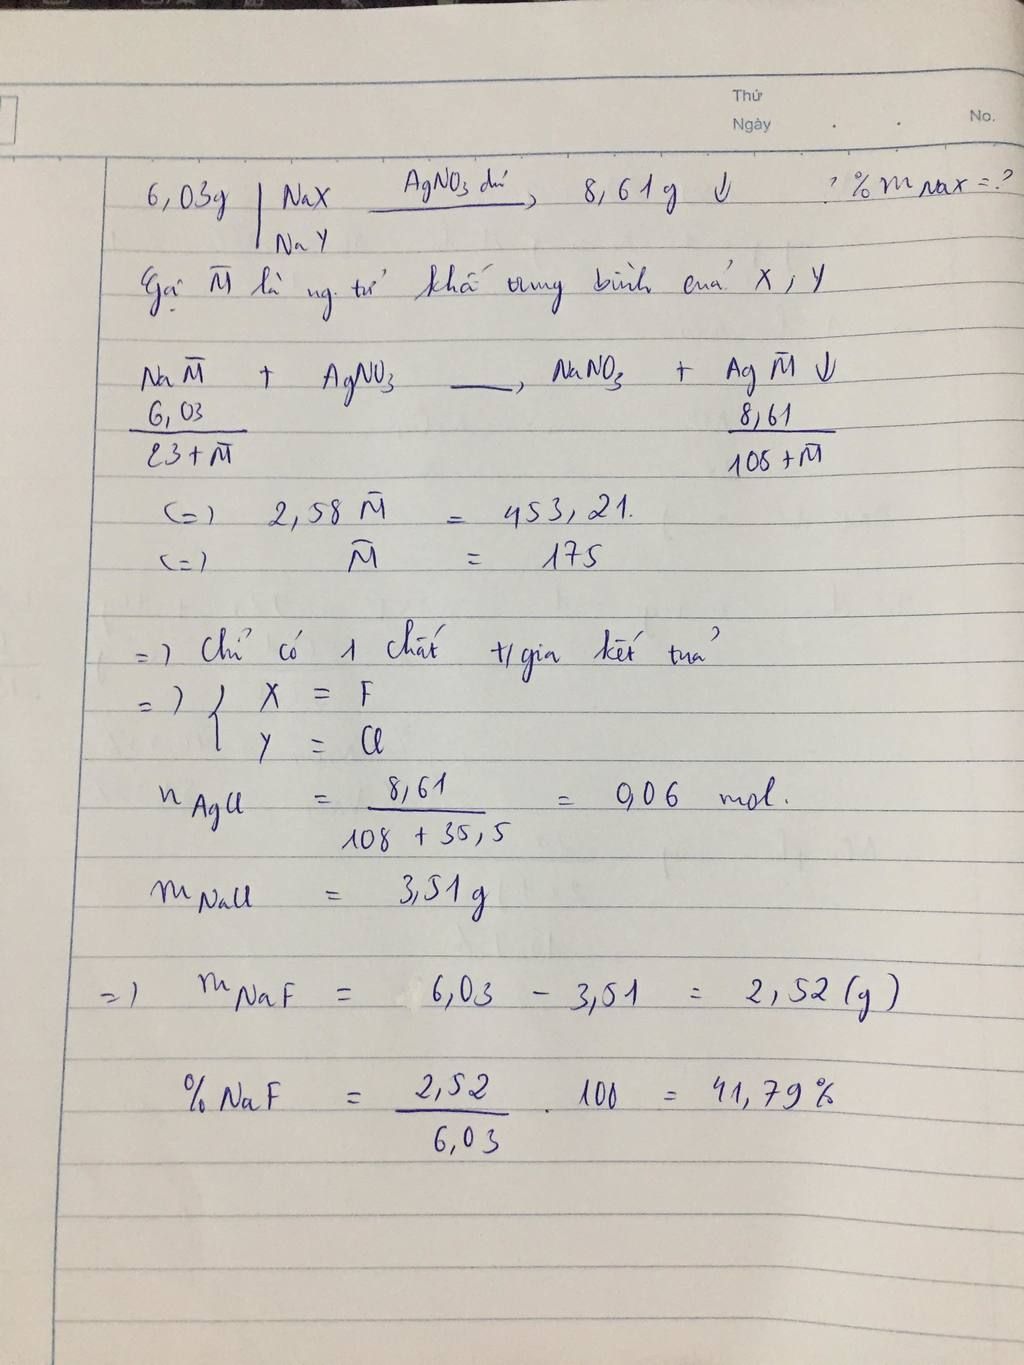 Thứ
Ngày . . No.
6,03g | NaX AgNO3 dư → 8,61g ↓ ? % m NaX = ?
NaY
Gọi M̄ là ng.tử khối trung bình của X, Y
NaM̄ + AgNO3 → NaNO3 + AgM̄ ↓
6,03 8,61
23 + M̄ 108 + M̄
(=) 2,58 M̄ = 453,21.
(=) M̄ = 175
=) Chỉ có 1 chất t/gia kết tủa
=) { X = F
Y = Cl
n AgCl = 8,61 / 108 + 35,5 = 0,06 mol.
m NaCl = 3,51g
=) m NaF = 6,03 - 3,51 = 2,52 (g)
% NaF = 2,52 / 6,03 . 100 = 41,79 %